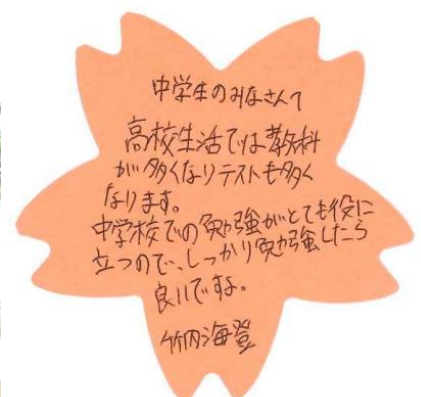 中学生のみなさんへ
高校生活では教科
が多くなりテストも多く
なります。
中学校での勉強がとても役に
立つので、しっかり勉強したら
良いですよ。
竹内海登